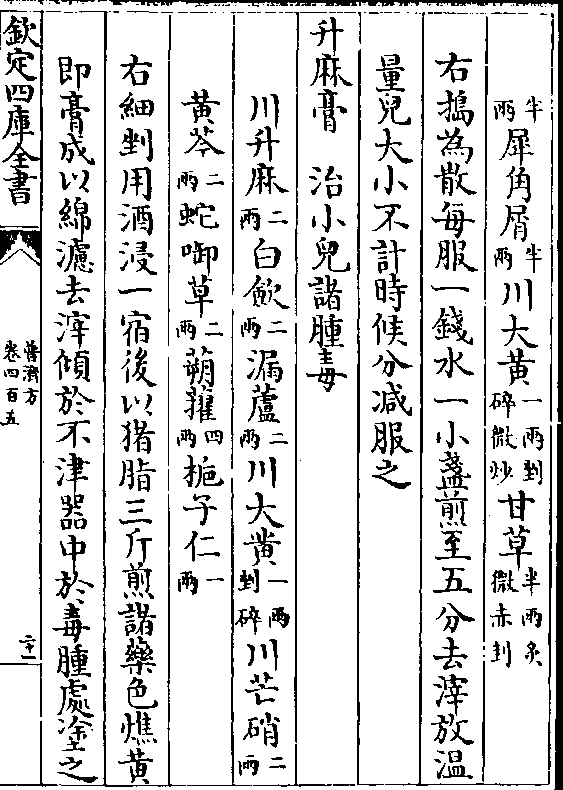 半兩犀角屑半兩川大黄一兩剉碎微炒甘草半兩炙微赤剉
右搗為散每服一錢水一小盞煎至五分去滓放温
量兒大小不計時候分減服之
升麻膏　治小兒諸腫毒
川升麻二兩白斂二兩漏蘆二兩川大黄一兩剉碎川芒硝二兩
黄芩二兩蛇啣草二兩蒴藋四兩梔子仁一兩
右細剉用酒浸一宿後以猪脂三斤煎諸藥色燋黄
即膏成以綿濾去滓傾於不津器中於毒腫處塗之
欽定四庫全書
普濟方
卷四百五